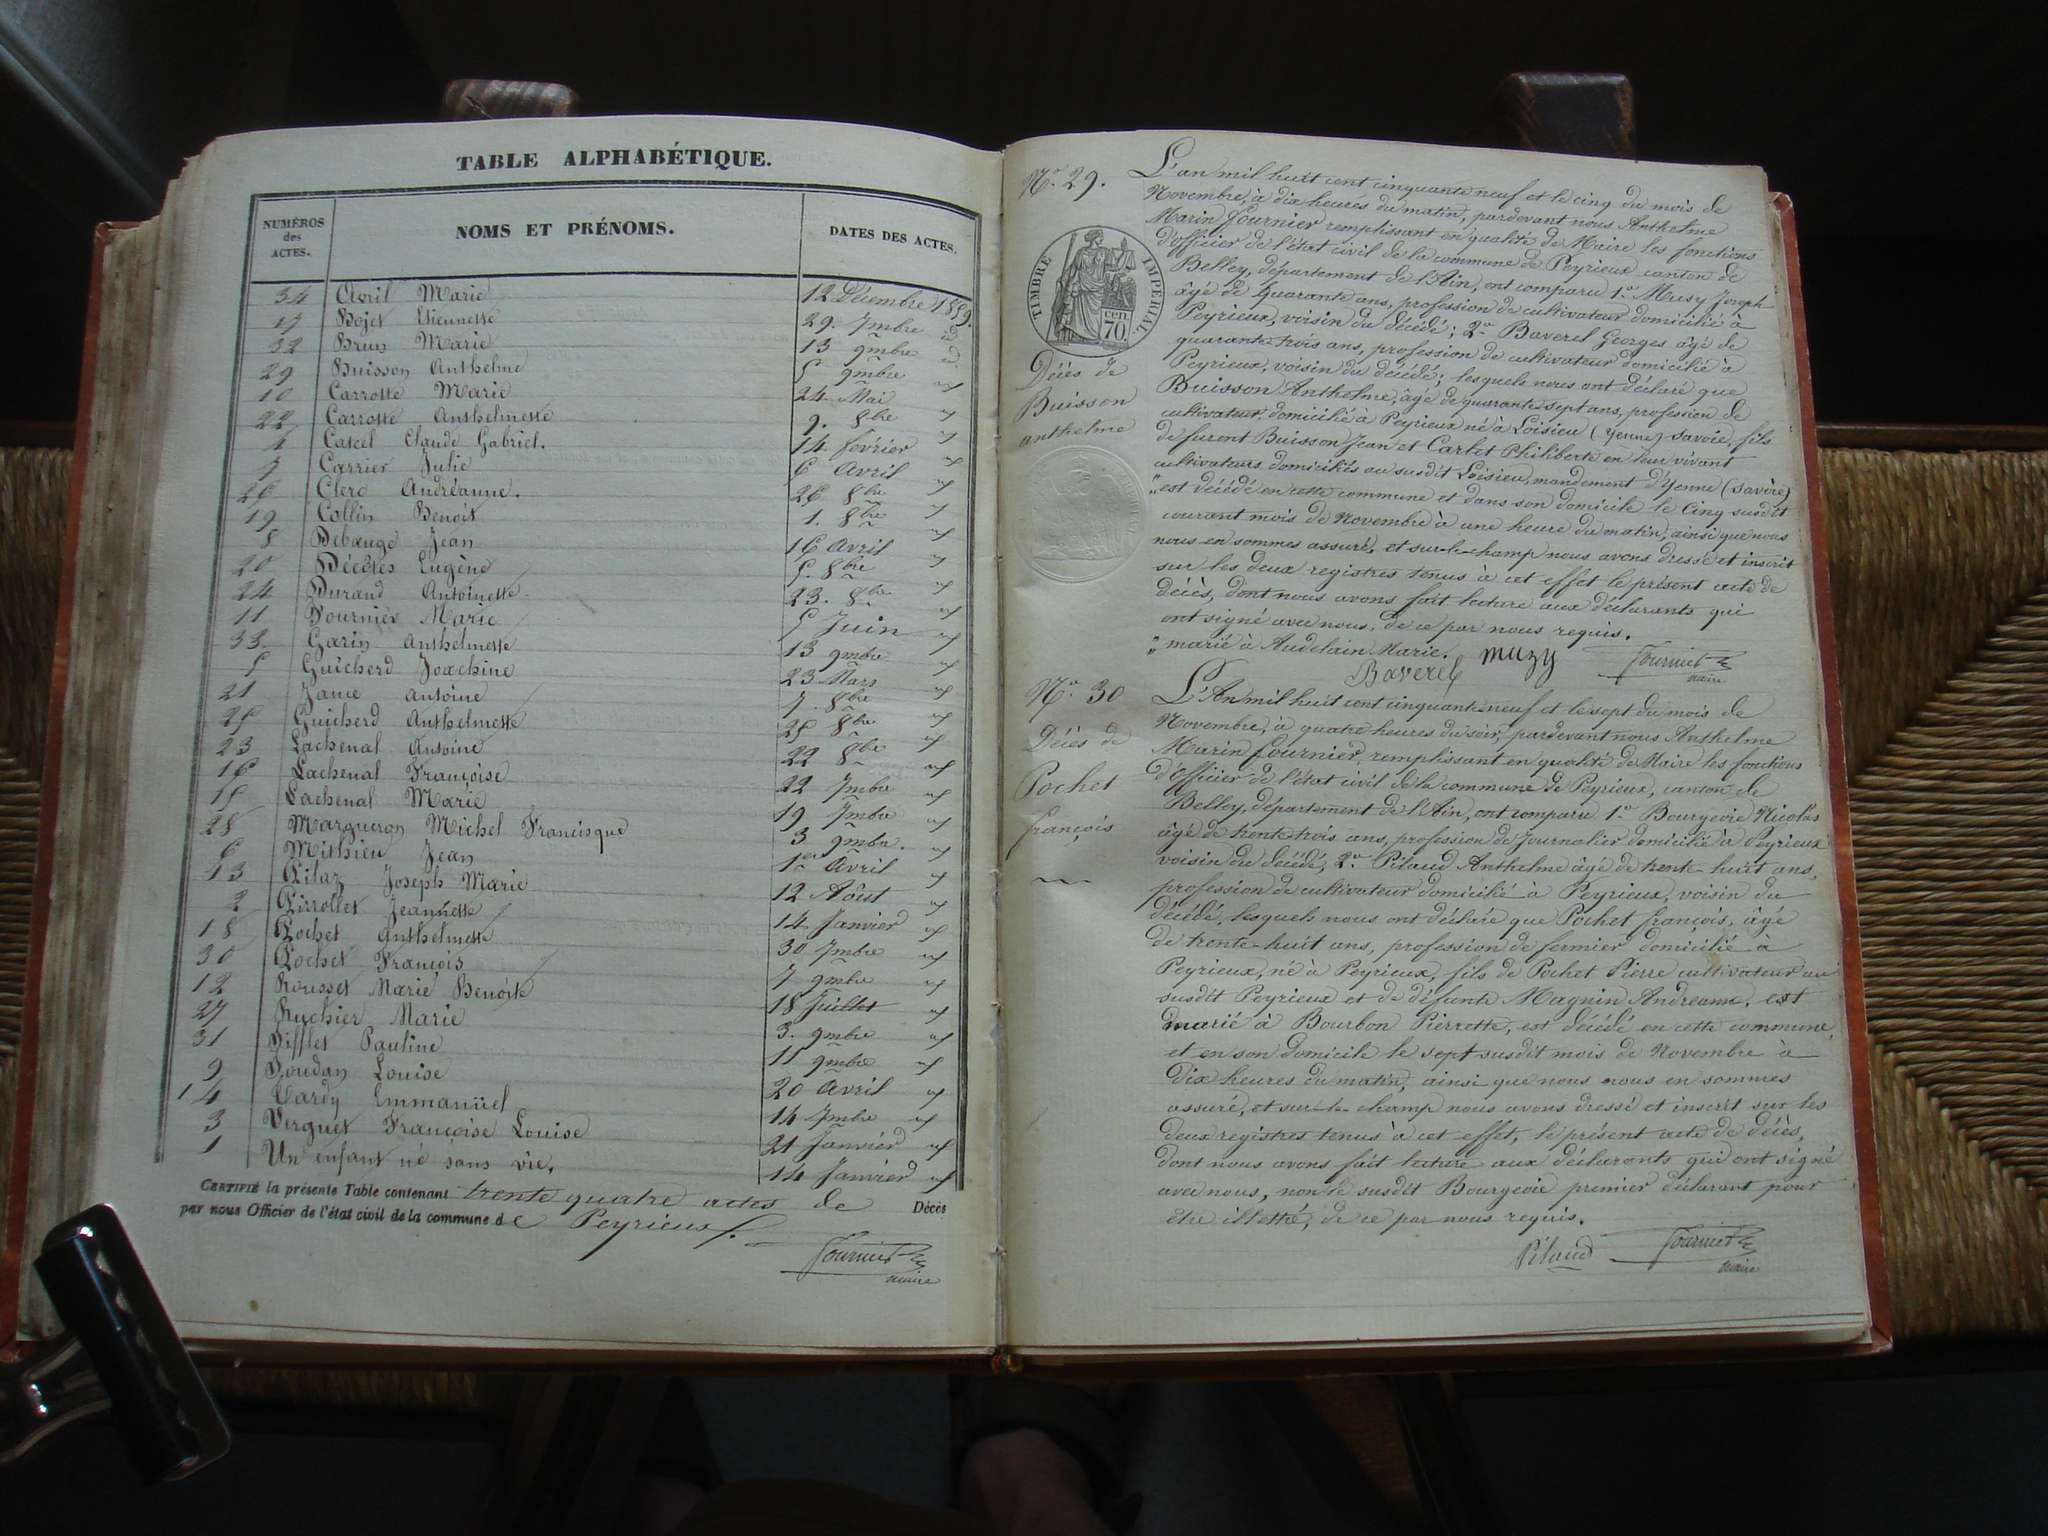 TABLE ALPHABÉTIQUE.
NUMÉROS des ACTES. NOMS ET PRÉNOMS. DATES DES ACTES.
34 Avril Marie 12 Décembre 1859.
17 Bojet Etiennette 29. 7mbre id
32 Brun Marie 13 9mbre id
29 Buisson Anthelme 5 9mbre id
10 Carrotte Marie 24 Mai id
22 Carrotte Anthelmette 9. 8bre id
4 Castel Claude Gabriel. 14 février id
7 Carrier Julie 6 Avril id
26 Clerc Andréanne. 26 8bre id
19 Collin Benoit 1. 8bre id
8 Debauge Jean 16 Avril id
20 Décôtes Eugène 5. 8bre id
24 Durand Antoinette 23. 8bre id
11 Fournier Marie 5 Juin id
33. Garin Anthelmette 13 9mbre id
5 Guicherd Joachine 23 Mars id
21 Jame Antoine 7. 8bre id
25 Guicherd Anthelmette 25 8bre id
23 Lachenal Antoine 22 8bre id
16 Lachenal Françoise 22 7mbre id
15 Lachenal Marie 19 7mbre id
28 Margueron Michel Francisque 3 9mbre. id
6 Mithieu Jean 1er Avril id
13 Pilaz Joseph Marie 12 Août id
2 Pirrollet Jeannette 14 Janvier id
18 Pochet Anthelmette 30 7mbre id
30 Pochet François 7 9mbre id
12 Rousset Marie Benoite 18 Juillet id
27 Ruchier Marie 3. 9mbre id
31 Tifflet Pauline 11 9mbre id
9 Joudan Louise 20 Avril id
14 Vardy Emmanüel 14 7mbre id
3 Verguet Françoise Louise 21 Janvier id
1 Un enfant né sans vie. 14 Janvier id
CERTIFIÉ la présente Table contenant trente quatre actes de Décès
par nous Officier de l'état civil de la commune de Peyrieux.
Fournier
maire
N° 29.
TIMBRE IMPÉRIAL
70 cen.
Décès de
Buisson
anthelme
L'an mil huit cent cinquante neuf et le cinq du mois de
Novembre, à dix heures du matin, pardevant nous Anthelme
Marin Fournier remplissant en qualité de Maire les fonctions
d'officier de l'état civil de la commune de Peyrieux canton de
Belley, département de l'Ain, ont comparu 1° Musy Joseph
âgé de quarante ans, profession de cultivateur domicilié à
Peyrieux, voisin du décédé; 2° Baverel Georges âgé de
quarante-trois ans, profession de cultivateur domicilié à
Peyrieux, voisin du décédé; lesquels nous ont déclaré que
Buisson Anthelme, âgé de quarante-sept ans, profession de
cultivateur domicilié à Peyrieux né à Loisieu (Yenne) Savoie, fils
de furent Buisson Jean et Carlet Philiberte en leur vivant
cultivateurs domiciliés au susdit Loisieu, mandement d'Yenne (Savoie)
" est décédé en cette commune et dans son domicile le cinq susdit
courant mois de Novembre à une heure du matin, ainsi que nous
nous en sommes assuré, et sur-le-champ nous avons dressé et inscrit
sur les deux registres tenus à cet effet le présent acte de
décès, dont nous avons fait lecture aux déclarants qui
ont signé avec nous, de ce par nous requis.
" marié à Audelain Marie.
Baverel muzy Fournier
maire
N° 30
Décès de
Pochet
françois
L'An mil huit cent cinquante-neuf et le sept du mois de
Novembre, à quatre heures du soir, pardevant nous Anthelme
Marin Fournier, remplissant en qualité de Maire les fonctions
d'Officier de l'état civil de la commune de Peyrieux, canton de
Belley, département de l'Ain, ont comparu 1° Bourgeois Nicolas
âgé de trente-trois ans, profession de Journalier domicilié à Peyrieux
voisin du décédé; 2° Pilaud Anthelme âgé de trente-huit ans,
profession de cultivateur domicilié à Peyrieux, voisin du
décédé, lesquels nous ont déclaré que Pochet françois, âgé
de trente-huit ans, profession de fermier domicilié à
Peyrieux, né à Peyrieux, fils de Pochet Pierre cultivateur au
susdit Peyrieux et de défunte Magnin Andréanne, est
marié à Bourbon Pierrette, est décédé en cette commune
et en son domicile le sept susdit mois de Novembre à
dix heures du matin, ainsi que nous nous en sommes
assuré, et sur-le-champ nous avons dressé et inscrit sur les
deux registres tenus à cet effet, le présent acte de décès,
dont nous avons fait lecture aux déclarants qui ont signé
avec nous, non le susdit Bourgeois premier déclarant pour
être illettré, de ce par nous requis.
Pilaud Fournier
maire